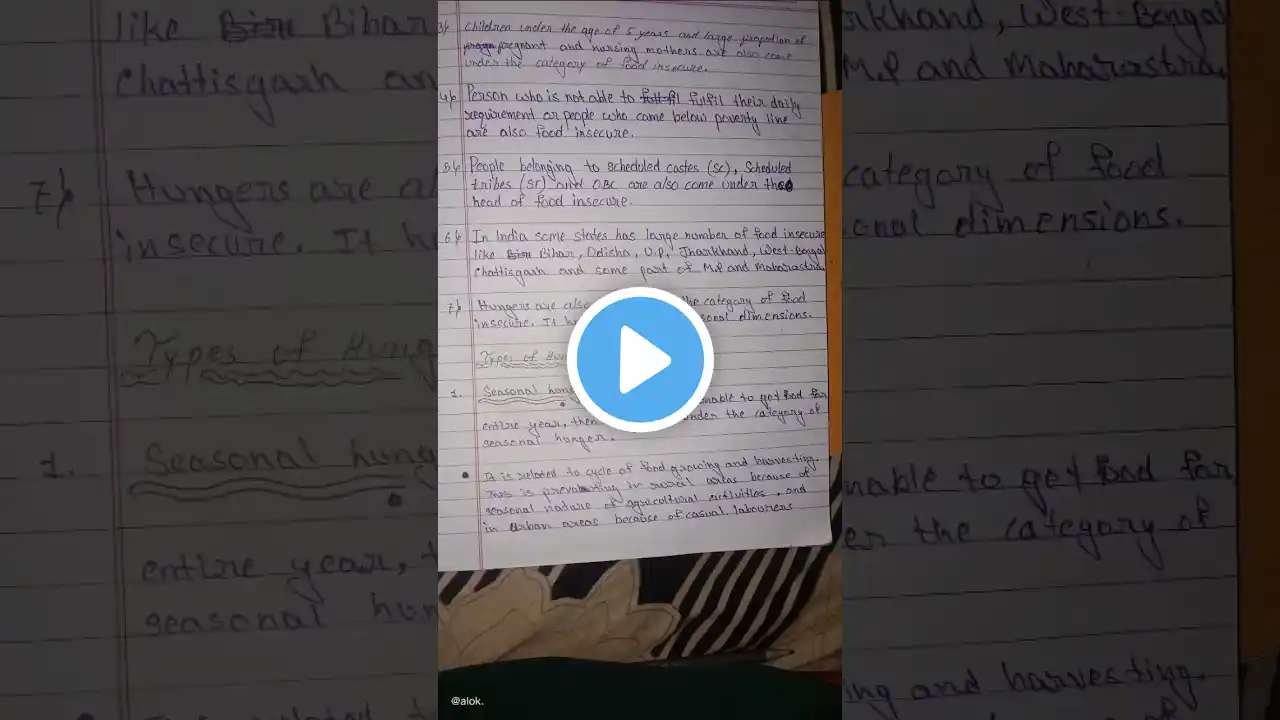 3) Children under the age of 5 years and large propotion of
pregnant and nursing mothers are also come
under the category of food insecure.
4) Person who is not able to fulfil their daily
requirement or people who came below poverty line
are also food insecure.
5) People belonging to scheduled castes (SC), Scheduled
tribes (ST) and OBC are also come under the
head of food insecure.
6) In India some states has large number of food insecure
like Bihar, Odisha, U.P, Jharkhand, West-Bengal
Chattisgarh and some part of M.P and Maharastra.
7) Hungers are also the category of food
insecure. It sonal dimensions.
Types of
1. Seasonal nable to get food for
entire year, then under the category of
seasonal hunger.
• It is related to cycle of food growing and harvesting.
This is in areas because of
seasonal nature of agricultural activities, and
in Urban areas because of casual labourers
@alok.